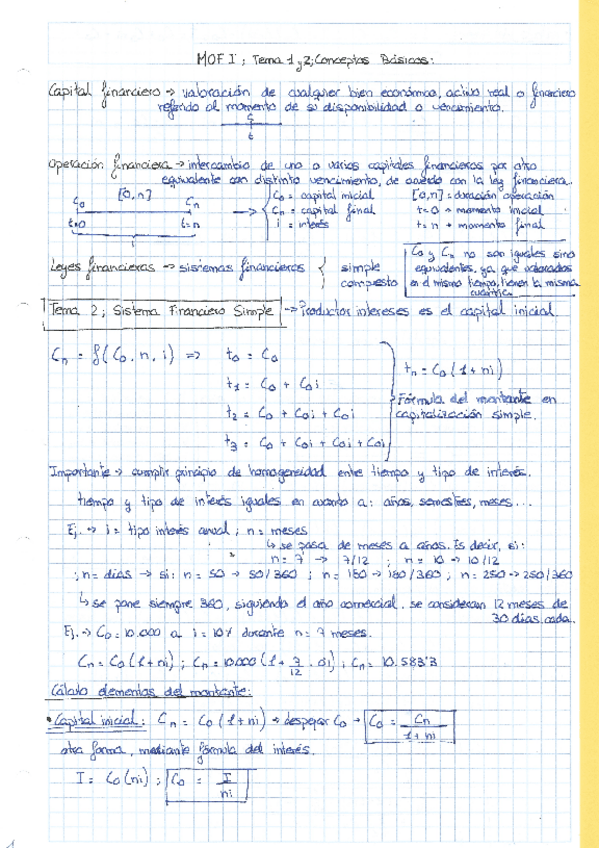 MOF I ; Tema 1 y 2; Conceptos Básicos:
Capital financiero → valoración de cualquier bien económico, activo real o financiero
referido al momento de su disponibilidad o vencimiento.
C
t
Operación financiera → intercambio de uno o varios capitales financieros por otro
equivalente con distinto vencimiento, de acuerdo con la ley financiera.
C0 [0,n] Cn → { C0 = capital inicial [0,n] = duración operación
t=0 t=n Cn = capital final t=0 → momento inicial
i i = interés t=n → momento final
Leyes financieras → sistemas financieros { simple
compuesto
C0 y Cn no son iguales sino
equivalentes, ya que valorados
en el mismo tiempo, tienen la misma
cuantía.
Tema 2; Sistema Financiero Simple → Productor intereses es el capital inicial.
Cn = f(C0, n, i) => t0 = C0
t1 = C0 + C0i
t2 = C0 + C0i + C0i
t3 = C0 + C0i + C0i + C0i
tn = C0(1+ni)
Fórmula del montante en
capitalización simple.
Importante → cumplir principio de homogeneidad entre tiempo y tipo de interés.
tiempo y tipo de interés iguales en cuanto a: años, semestres, meses...
Ej. → i = tipo interés anual ; n = meses
↳ se pasa de meses a años. Es decir, si:
n = 7 → 7/12 ; n = 10 → 10/12
; n = días → si: n = 50 → 50/360 ; n = 180 → 180/360 ; n = 250 → 250/360
↳ se pone siempre 360, siguiendo el año comercial. se consideran 12 meses de
30 días cada.
Ej. → C0 = 10.000 a i = 10% durante n = 7 meses.
Cn = C0(1+ni) ; Cn = 10.000(1 + 7/12 · 0'1) ; Cn = 10.583'3
Cálculo elementos del montante:
• Capital inicial: Cn = C0(1+ni) → despejar C0 → C0 = Cn / 1+ni
otra forma, mediante fórmula del interés.
I = C0(ni) ; C0 = I / ni